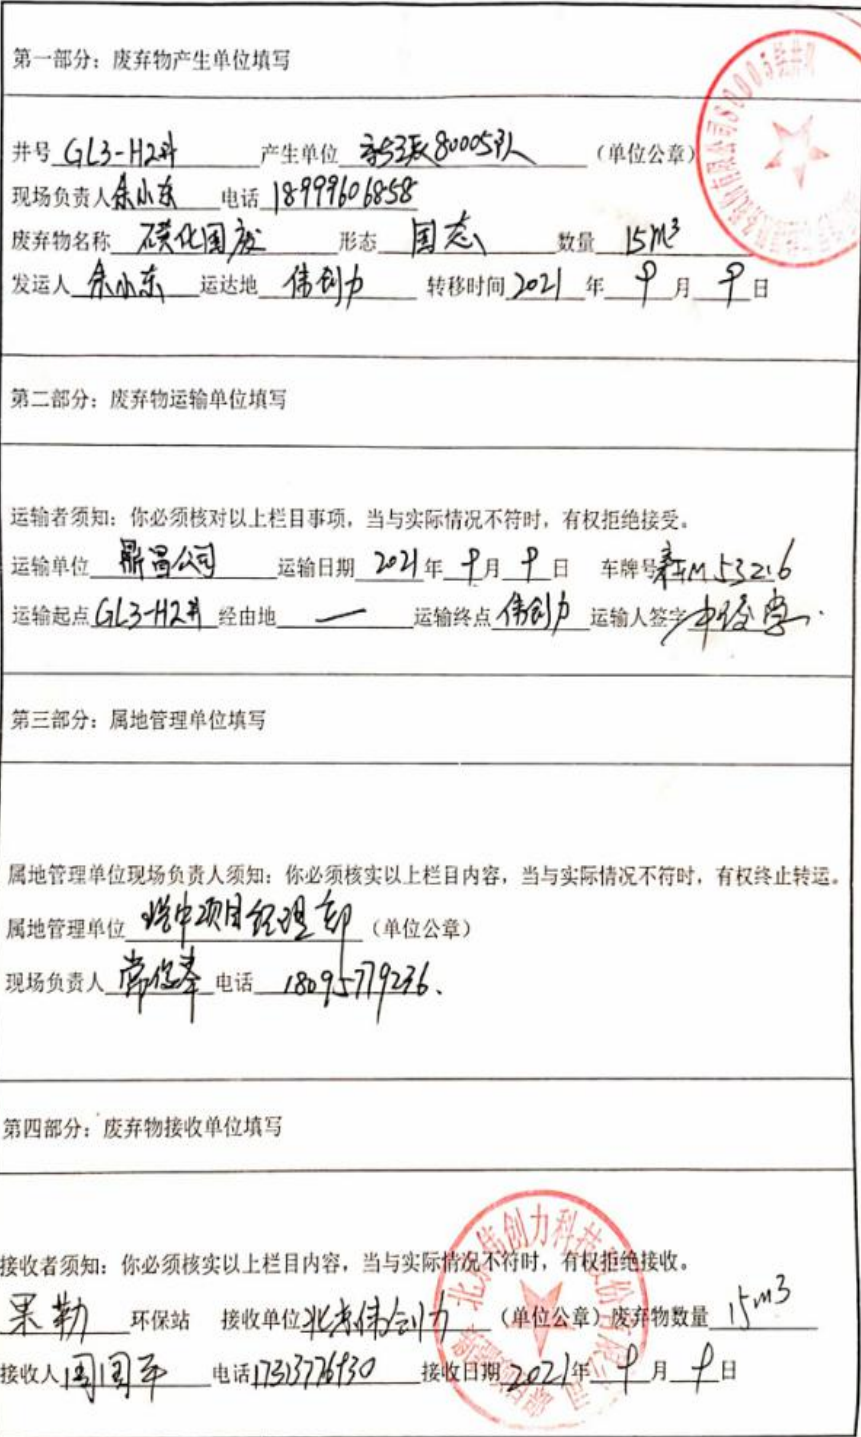 第一部分：废弃物产生单位填写
井号 GL3-H2井 产生单位 80005队 （单位公章）
现场负责人 余小东 电话 18999606858
废弃物名称 磺化固废 形态 固态 数量 15m³
发运人 余小东 运达地 伟创力 转移时间 2021 年 9 月 9 日
第二部分：废弃物运输单位填写
运输者须知：你必须核对以上栏目事项，当与实际情况不符时，有权拒绝接受。
运输单位 鼎昌公司 运输日期 2021 年 9 月 9 日 车牌号 新M53216
运输起点 GL3-H2井 经由地 — 运输终点 伟创力 运输人签字
第三部分：属地管理单位填写
属地管理单位现场负责人须知：你必须核实以上栏目内容，当与实际情况不符时，有权终止转运。
属地管理单位 塔中项目经理部 （单位公章）
现场负责人 常俊峯 电话 18095779236.
第四部分：废弃物接收单位填写
接收者须知：你必须核实以上栏目内容，当与实际情况不符时，有权拒绝接收。
果勒 环保站 接收单位 北京伟创力 （单位公章）废弃物数量 15m³
接收人 周国平 电话 接收日期 2021 年 9 月 9 日